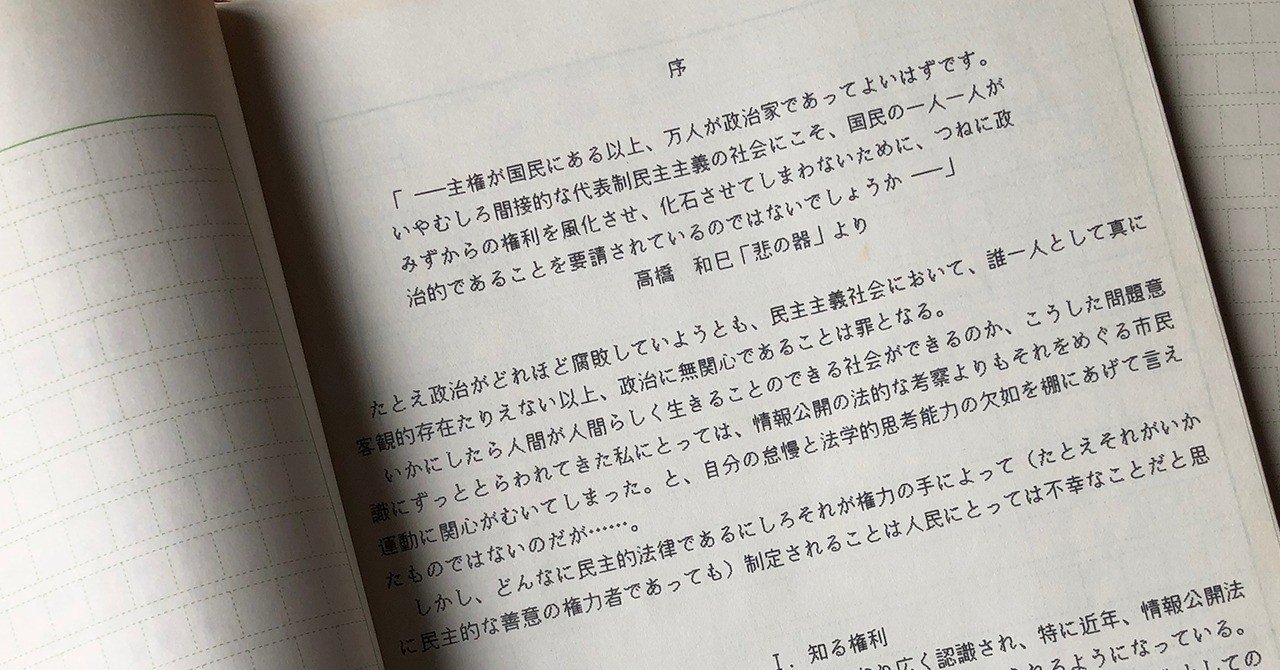 序
「 ――主権が国民にある以上、万人が政治家であってよいはずです。
いやむしろ間接的な代表制民主主義の社会にこそ、国民の一人一人が
みずからの権利を風化させ、化石させてしまわないために、つねに政
治的であることを要請されているのではないでしょうか ――」
高橋 和巳「悲の器」より
たとえ政治がどれほど腐敗していようとも、民主主義社会において、誰一人として真に
客観的存在たりえない以上、政治に無関心であることは罪となる。
いかにしたら人間が人間らしく生きることのできる社会ができるのか、こうした問題意
識にずっととらわれてきた私にとっては、情報公開の法的な考察よりもそれをめぐる市民
運動に関心がむいてしまった。と、自分の怠慢と法学的思考能力の欠如を棚にあげて言え
たものではないのだが……。
しかし、どんなに民主的法律であるにしろそれが権力の手によって(たとえそれがいか
に民主的な善意の権力者であっても)制定されることは人民にとっては不幸なことだと思
Ⅰ. 知る権利
広く認識され、特に近年、情報公開法
れるようになっている。
しての